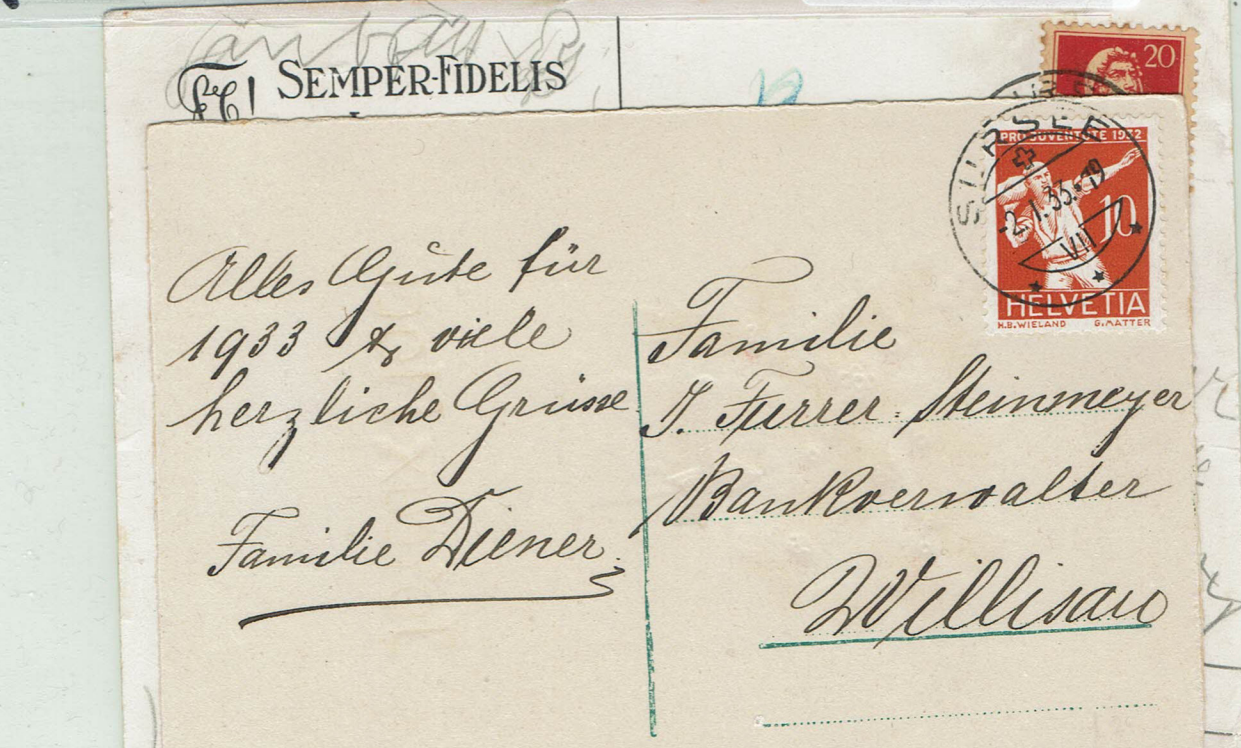 SEMPER-FIDELIS
20
PRO JUVENTUTE 1932
SURSEE
-2.I.33.-19
VII
10
HELVETIA
H.B.WIELAND G.MATTER
Alles Gute für
1933 & viele
herzliche Grüsse
Familie Diener.
Familie
J. Furrer-Steinmeyer
Bankverwalter
Willisau